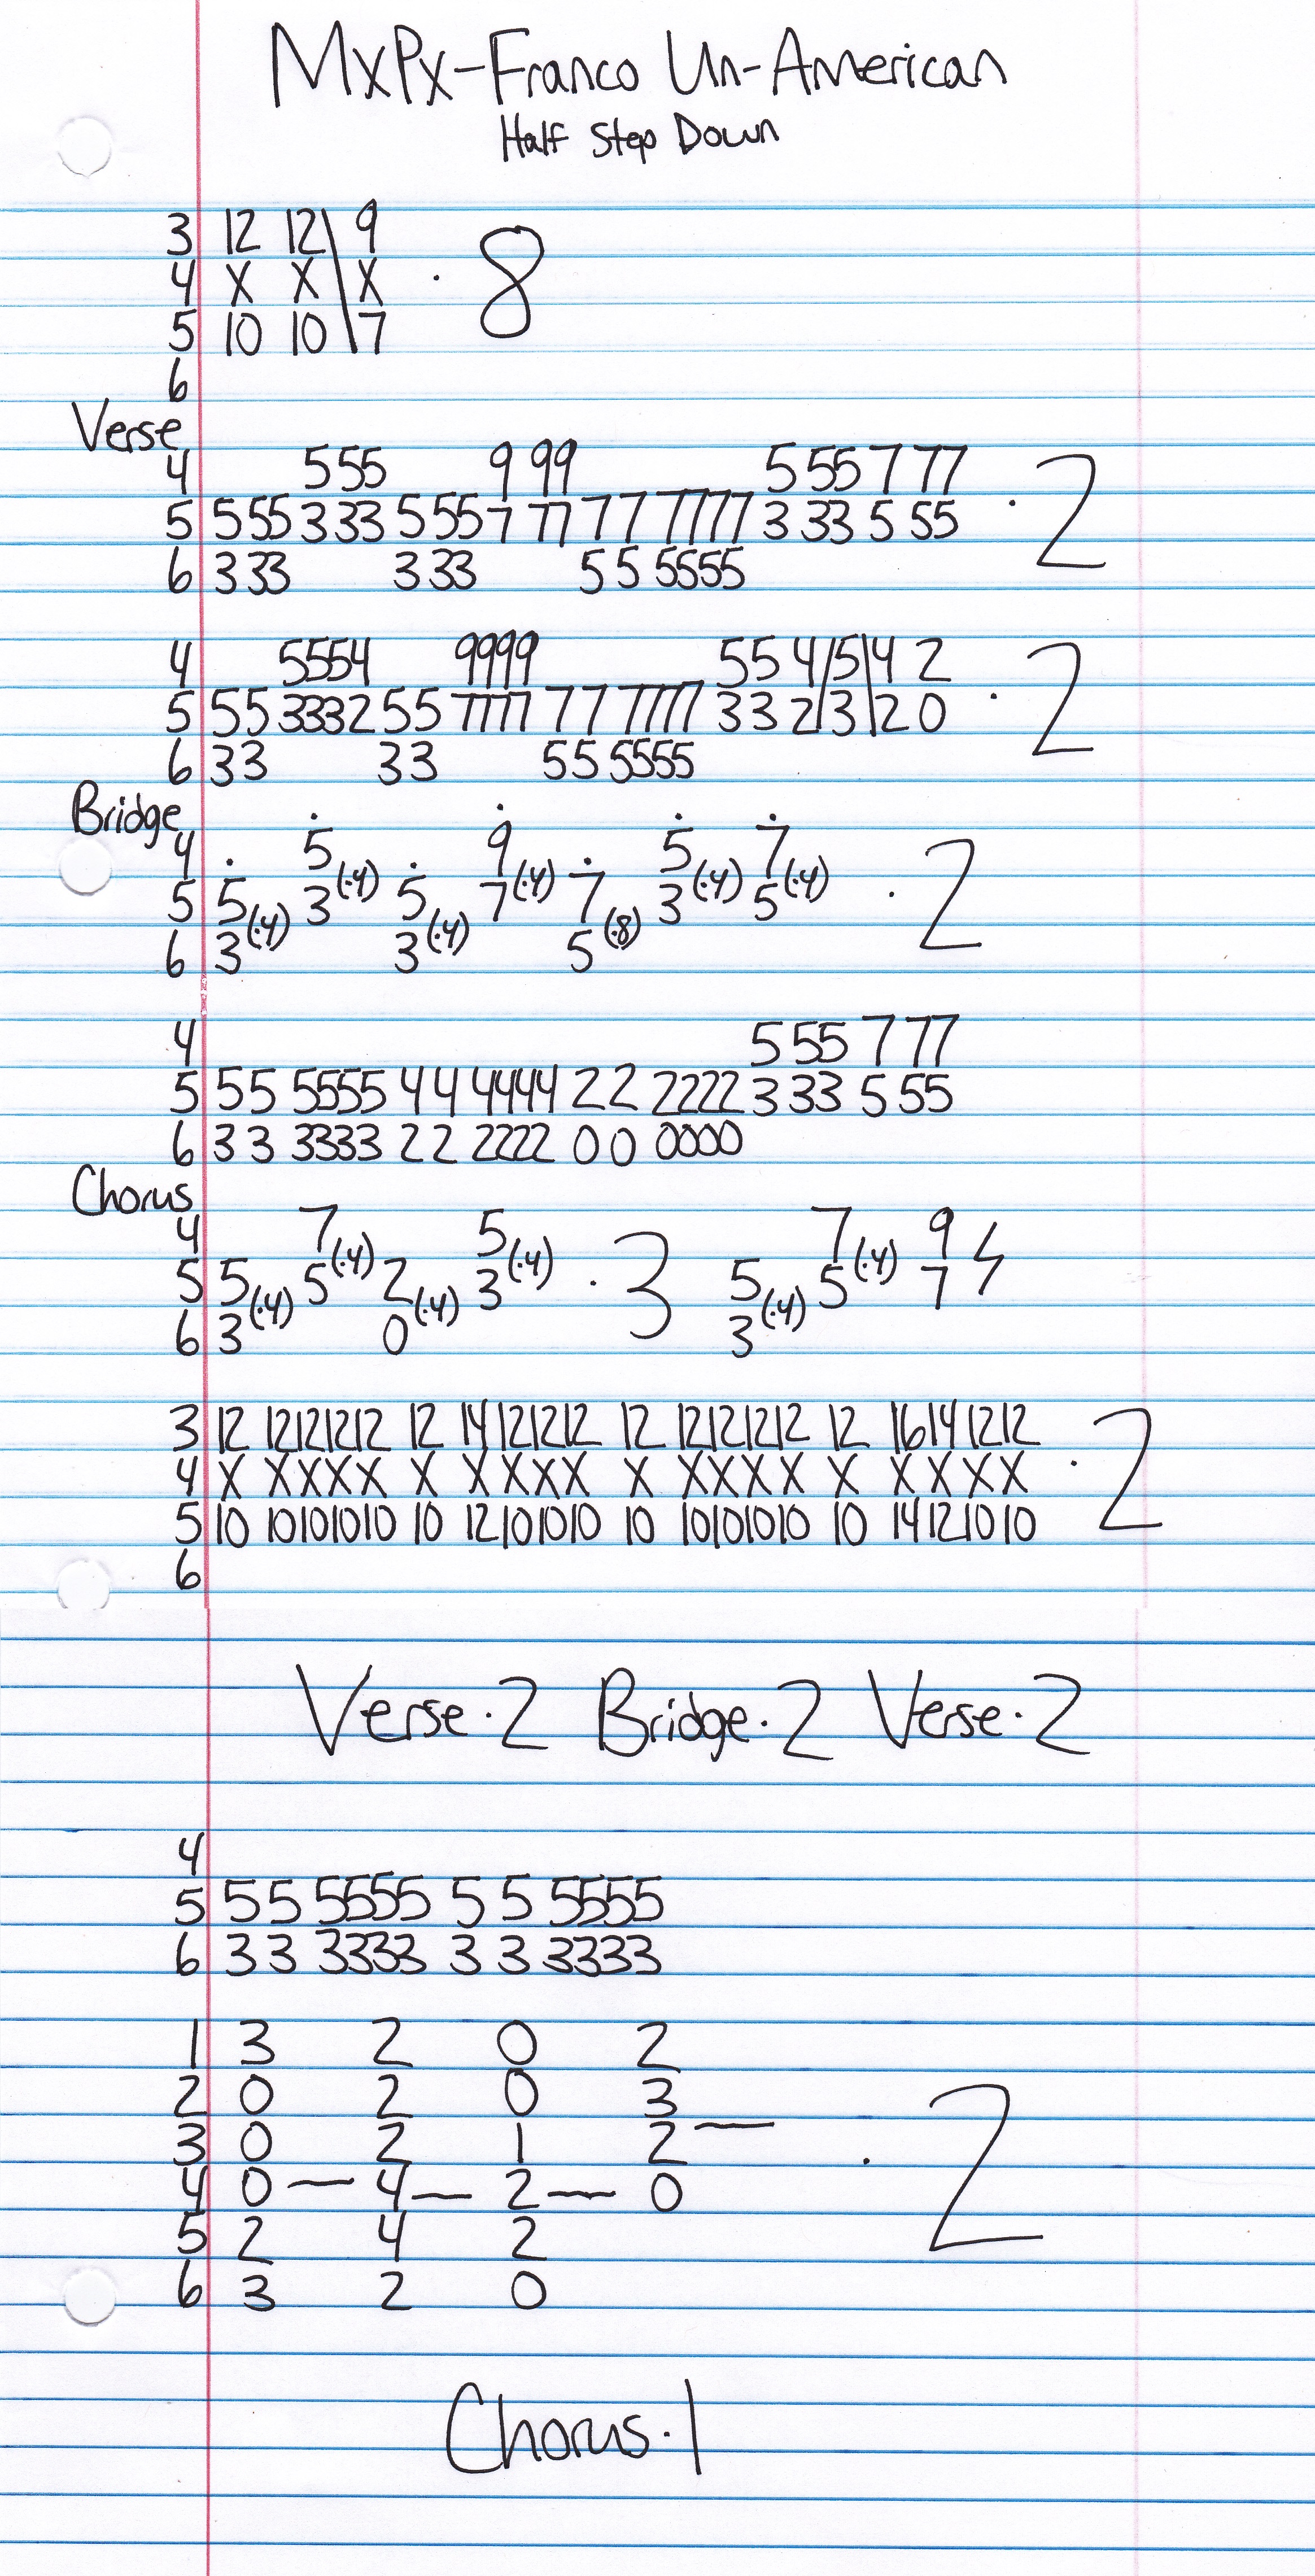 MxPx-Franco Un-American
Half Step Down
3 12 12\ 9
4 X X \ X · 8
5 10 10 \ 7
6
Verse
4 555 9 99 5 55 7 77
5 5 55 3 33 5 55 7 77 7 7 7777 3 33 5 55 · 2
6 3 33 3 33 5 5 5555
4 5554 9999 5 5 4/5\4 2
5 5 5 3332 5 5 7777 7 7 7777 3 3 2/3\2 0 · 2
6 3 3 3 3 5 5 5555
Bridge
4 5 9 5 7
5 5 3 (·4) 5 7 (·4) 7 3 (·4) 5 (·4) · 2
6 3 (·4) 3 (·4) 5 (·8)
4 5 55 7 77
5 5 5 5555 4 4 4444 2 2 2222 3 33 5 55
6 3 3 3333 2 2 2222 0 0 0000
Chorus
4 7 5 7 9
5 5 5 (·4) 2 3 (·4) · 3 5 5 (·4) 7
6 3 (·4) 0 (·4) 3 (·4)
3 12 12121212 12 14121212 12 12121212 12 16141212
4 X XXXX X XXXX X XXXX X XXXX · 2
5 10 10101010 10 12101010 10 10101010 10 14121010
6
Verse·2 Bridge·2 Verse·2
4
5 5 5 5555 5 5 5555
6 3 3 3333 3 3 3333
1 3 2 0 2
2 0 2 0 3
3 0 2 1 2 —
4 0 — 4 — 2 — 0 · 2
5 2 4 2
6 3 2 0
Chorus·1